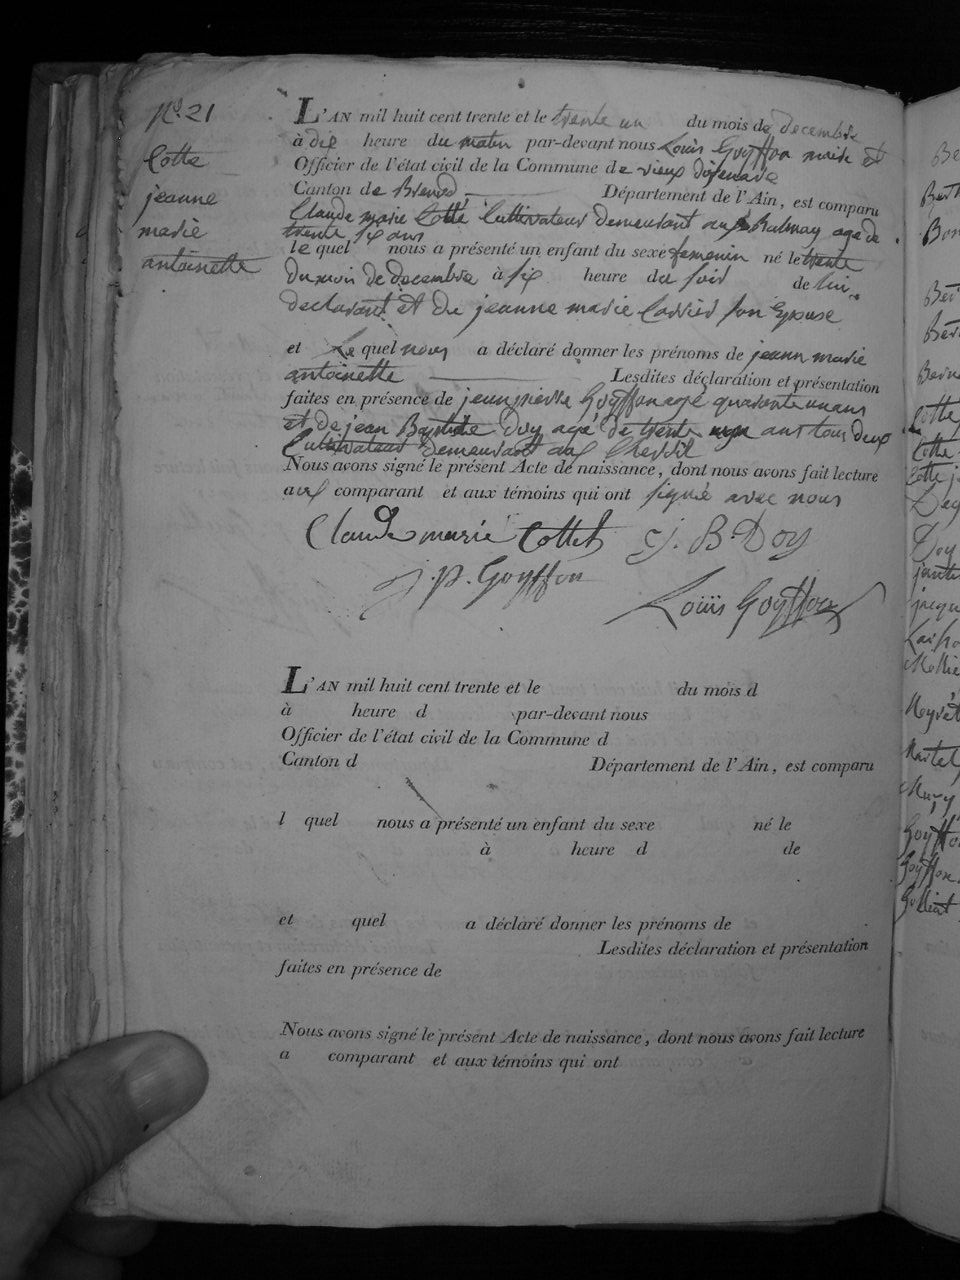 N.º 21
Cotte
jeanne
marie
antoinette
L'AN mil huit cent trente et le trente un du mois de decembre
à dix heure du matin par-devant nous Louis Goyffon maire et
Officier de l'état civil de la Commune de vieux d'isenave
Canton de Brenod Département de l'Ain, est comparu
Claude marie Cotte Cultivateur demeurant aux Balmay age de
trente six ans
le quel nous a présenté un enfant du sexe femenin né le trente
du mois de decembre à six heure du soir de lui
declarant et de jeanne marie Carrier son Epouse
et Le quel nous a déclaré donner les prénoms de jeann marie
antoinette Lesdites déclaration et présentation
faites en présence de jean pierre Goyffon agé quarante un ans
et de jean Baptiste Doy agé de trente ans tous deux
Cultivateur demeurant aux
Nous avons signé le présent Acte de naissance, dont nous avons fait lecture
aux comparant et aux témoins qui ont signé avec nous
Claude marie Cottet J. B Doy
J. P. Goyffon
Louis Goyffon
L'AN mil huit cent trente et le du mois d
à heure d par-devant nous
Officier de l'état civil de la Commune d
Canton d Département de l'Ain, est comparu
l quel nous a présenté un enfant du sexe né le
à heure d de
et quel a déclaré donner les prénoms de
Lesdites déclaration et présentation
faites en présence de
Nous avons signé le présent Acte de naissance, dont nous avons fait lecture
a comparant et aux témoins qui ont